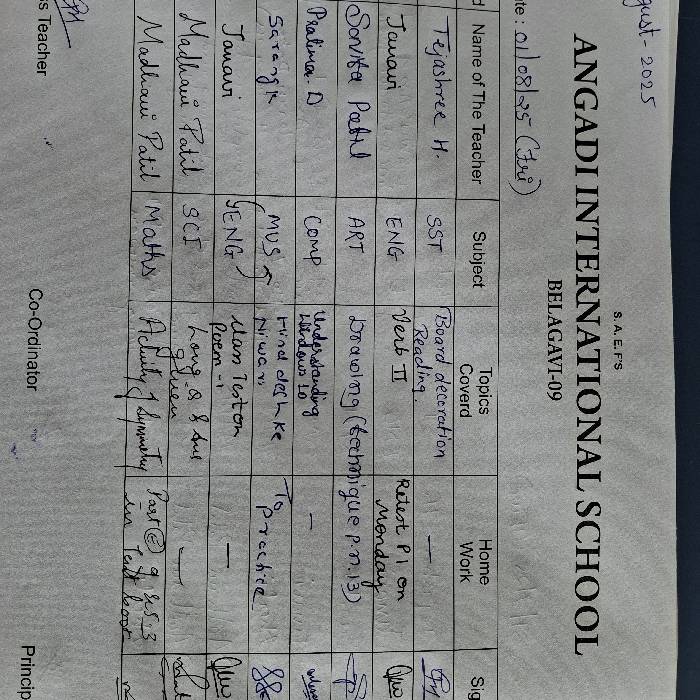 gust - 2025
S.A.E.F'S
ANGADI INTERNATIONAL SCHOOL
BELAGAVI-09
te : 01/08/25 (Fri)
d Name of The Teacher Subject Topics Coverd Home Work Sig
Tejashree H. SST Board decoration Reading —
Janavi ENG Verb II Retest P1 on Monday
Savita Patil ART Drawing (technique P.n.13)
Pratima. D COMP Understanding Windows 10 —
Sarangk MUS Hind desh ke Niwasi To practice
Janavi ENG Class Test on Poem-1 —
Madhavi Patil SCI Long Q & Ans given —
Madhavi Patil Maths Activity of Symmetry Part @ 9 in Text book
s Teacher Co-Ordinator Princip